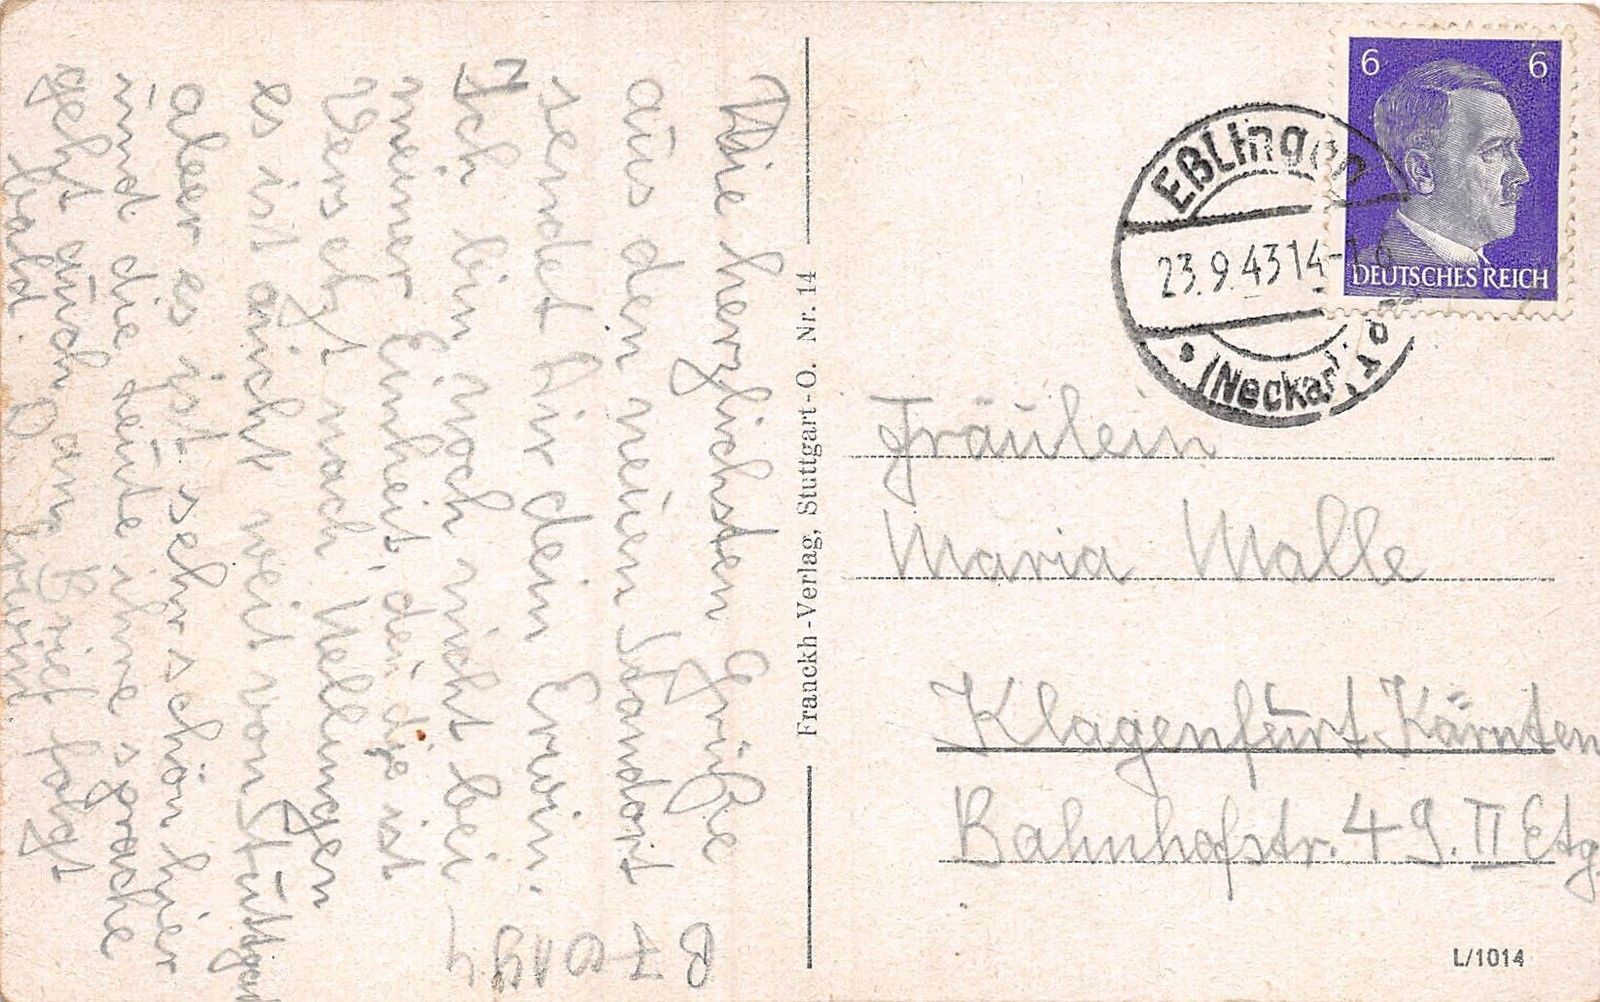 Die herzlichsten Grüße
aus den neuen Standort
sendet Dir dein Erwin.
Ich bin noch nicht bei
meiner Einheit, den die ist
Versetzt nach Mellingen
es ist nicht weit von Stuttgart
aber es ist sehr schön hier
und die Leute ihre sprache
geht auch am Brief folgt
bald.
Franckh-Verlag, Stuttgart-O. Nr. 14
6 6
DEUTSCHES REICH
Eßlingen
23.9.43 14-
(Neckar)
Fräulein
Maria Malle
Klagenfurt. Kärnten
Bahnhofstr. 49. II Etg.
L/1014